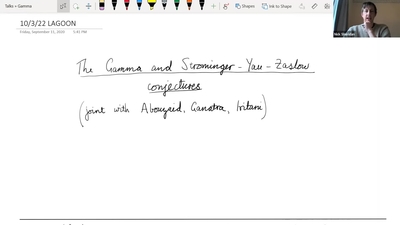 Talks + Gamma
Shapes
Ink to Shape
10/3/22 LAGOON
Friday, September 11, 2020 5:43 PM
The Gamma and Strominger-Yau-Zaslow
conjectures
(joint with Abouzaid, Ganatra, Iritani)